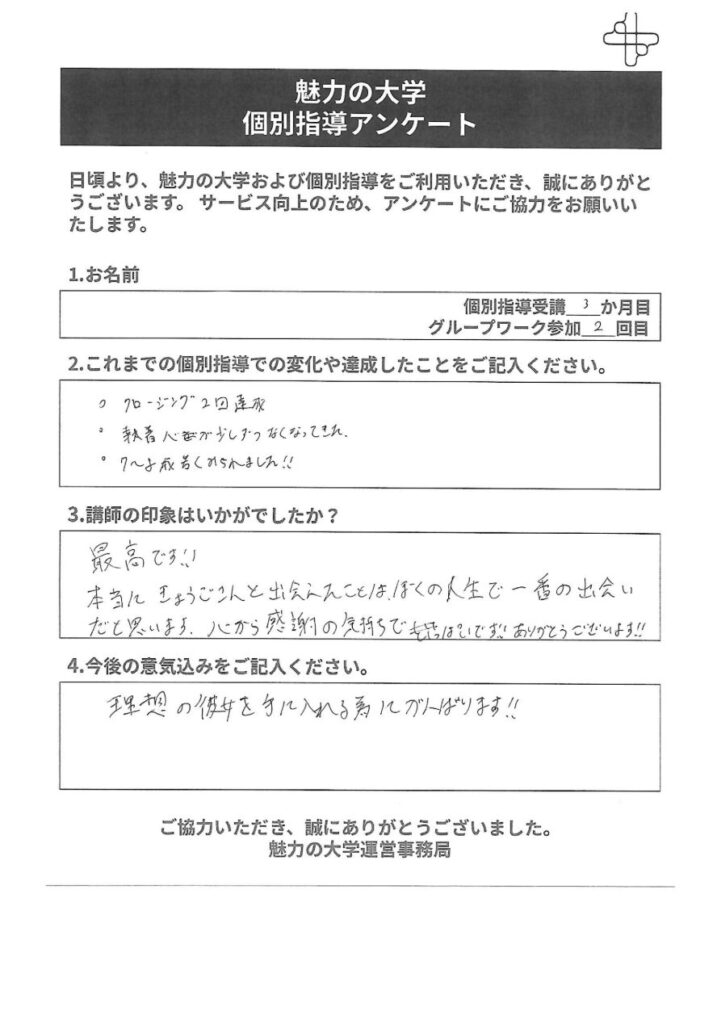 魅力の大学
個別指導アンケート
日頃より、魅力の大学および個別指導をご利用いただき、誠にありがと
うございます。 サービス向上のため、アンケートにご協力をお願いい
たします。
1.お名前
個別指導受講 3 か月目
グループワーク参加 2 回目
2.これまでの個別指導での変化や達成したことをご記入ください。
○ クロージング2回達成
° 執着心が少しずつなくなってきた、
° 7〜8歳若くみられました!!
3.講師の印象はいかがでしたか？
最高です!!
本当に きょうごさんと出会えたことは、ぼくの人生で一番の出会い
だと思います、心から感謝の気持ちで いっぱいです!! ありがとうございます!!
4.今後の意気込みをご記入ください。
理想の彼女を手に入れる為にがんばります!!
ご協力いただき、誠にありがとうございました。
魅力の大学運営事務局